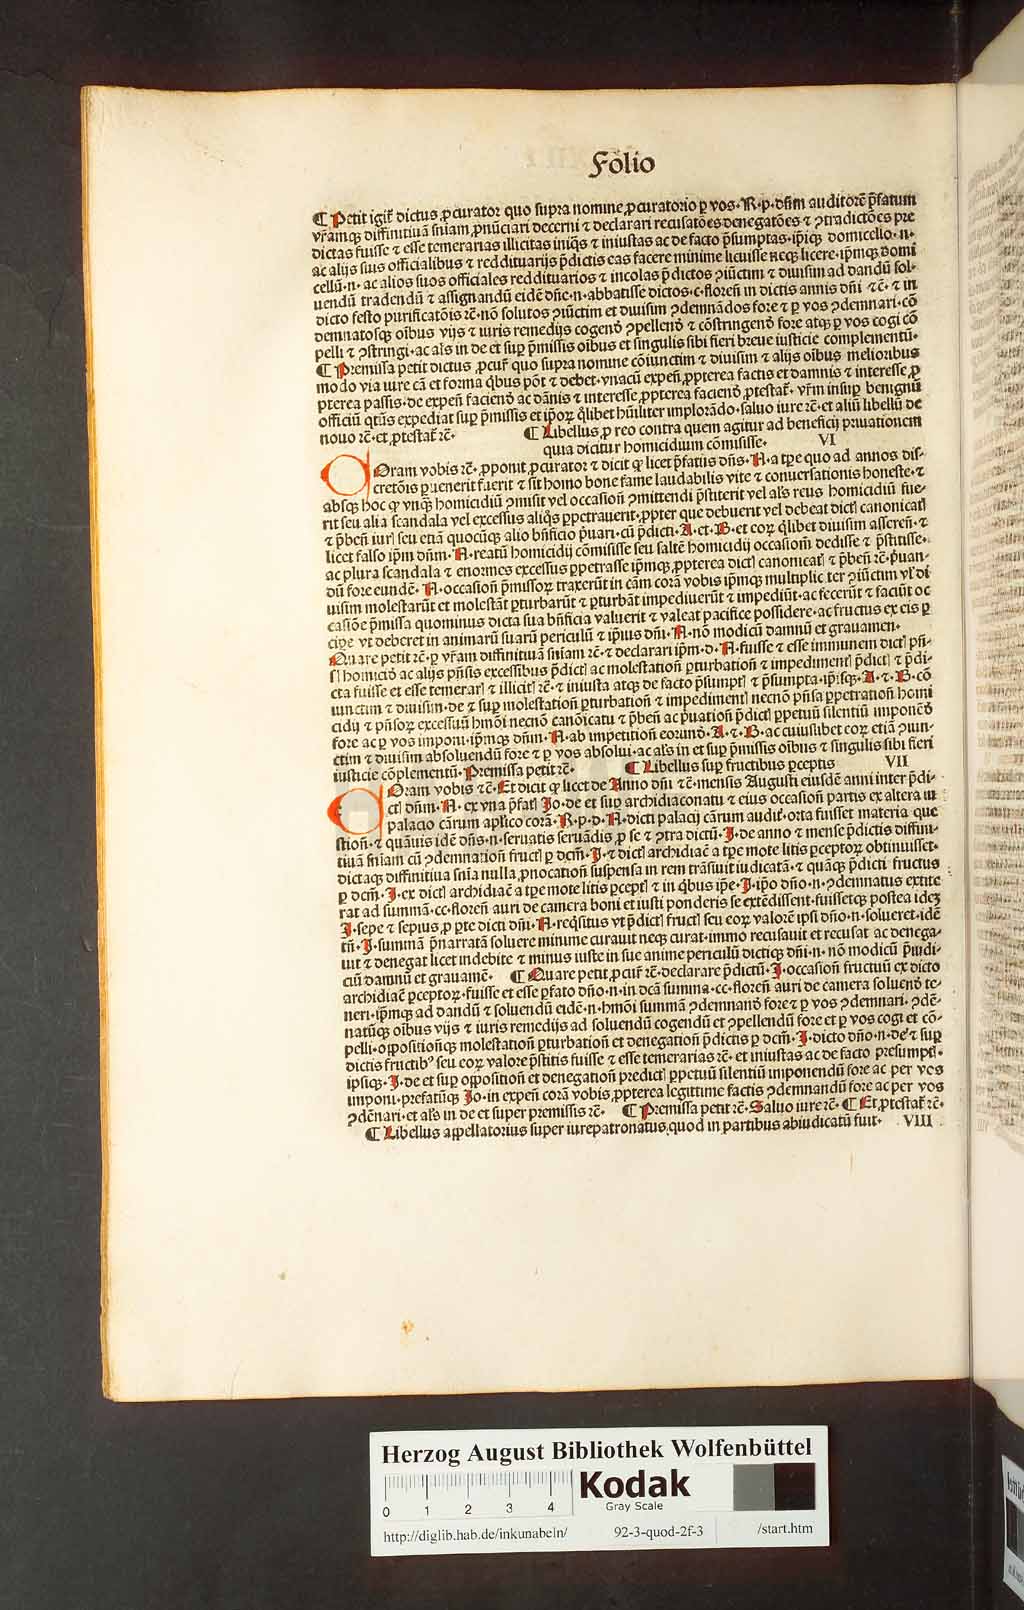 Folio
¶ Petit igit̃ dictus ꝓcurator quo supra nomine ꝓcuratorio ꝑ vos·R·p·dñm auditorẽ p̃fatum
vr̃amqꝫ diffinitiuã sniam ꝓnũciari decerni ⁊ declarari recusatões denegatões ⁊ ꝯtradictões pre
dictas fuisse ⁊ esse temerarias illicitas iniq̃s ⁊ iniustas ac de facto p̃sumptas·ip̃iqꝫ domicello·n·
ac alijs suis officialibus ⁊ reddituarijs p̃dictis eas facere minime licuisse neqꝫ licere·ip̃mqꝫ domi
cellũ·n·ac alios suos officiales reddituarios ⁊ incolas p̃dictos ꝯiũctim ⁊ diuisim ad dandũ sol-
uendũ tradendũ ⁊ assignandũ eidẽ dñe·n·abbatisse dictos·c·floreñ in dictis annis dñi ⁊c̃·⁊ in
dicto festo purificatõis rc̃·nõ solutos ꝯiũctim et diuisim ꝯdemnãdos fore ⁊ ꝑ vos ꝯdemnari·cõ
demnatosqꝫ oĩbus vijs ⁊ iuris remedijs cogenð ꝯpellenð ⁊ cõstringenð fore atqꝫ ꝑ vos cogi cõ
pelli ⁊ ꝯstringi·ac als̃ in de et sup̱ p̃missis oĩbus et singulis sibi fieri breue iusticie complementũ·
¶ Premissa petit dictus ꝓcur̃ quo supra nomine cõiunctim ⁊ diuisim ⁊ alijs oĩbus melioribus
modo via iure cã et forma q̃bus põt ⁊ debet·vnacũ expeñ ꝓpterea factis et damnis ⁊ interesse ꝓ
pterea passis·de expeñ facienð ac dãnis ⁊ interesse ꝓpterea facienð ꝓtestat̃·vr̃m insup̱ benignũ
officiũ qt̃us expediat sup̱ p̃missis et ip̃oꝝ q̃libet hũiliter implorãdo·saluo iure rc̃·et aliũ libellũ de
nouo rc̃·et ꝓtestat̃ rc̃·
¶ Libellus ꝓ reo contra quem agitur ad beneficij priuationem
quia dicitur homicidium cõmisisse· VI
Oram vobis rc̃·ꝓponit ꝓcurator ⁊ dicit ꝙ licet p̃fatus dñs·N·a tp̃e quo ad annos dis-
cretõis ꝑuenerit fuerit ⁊ sit homo bone fame laudabilis vite ⁊ conuersationis honeste·⁊
absqꝫ hoc ꝙ vnqꝫ homicidiũ ꝯmisit vel occasioñ ꝯmittendi p̃stiterit vel als̃ reus homicidiũ fue-
rit seu alia scandala vel excessus aliq̃s ꝑpetrauerit·ꝓpter que debuerit vel debeat dict̃ canonicat̃
⁊ p̃beñ iur̃ seu etiã quocũqꝫ alio bñficio p̃uari·cũ p̃dicti·A·et·B·et eoꝝ q̃libet diuisim asserẽñ·⁊
licet falso ip̃m dñm·N·reatũ homicidij cõmisisse seu saltẽ homicidij occasioñ dedisse ⁊ p̃stitisse·
ac plura scandala ⁊ enormes excessus ꝑpetrasse ip̃mqꝫ ꝓpterea dict̃ canonicat̃ ⁊ p̃beñ rc̃·p̃uan-
dũ fore eundẽ·N·occasioñ p̃missoꝝ traxerũt in cãm corã vobis ip̃mqꝫ multipliciter ꝯiũctim vl̃ di
uisim molestarũt et molestãt ꝑturbarũt ⁊ ꝑturbãt impediuerũt ⁊ impediũt·ac fecerũt ⁊ faciũt oc
casiõe p̃missa quominus dicta sua bñficia valuerit ⁊ valeat pacifice possidere·ac fructus ex eis ꝑ
ciꝑe vt deberet in animarũ suarũ periculũ ⁊ ip̃ius dñi·N·nõ modicũ damnũ et grauamen·
Quare petit rc̃·ꝑ vr̃am diffinitiuã sniam rc̃·⁊ declarari ip̃m·d·N·fuisse ⁊ esse immunem dict̃ p̃ñ-
s̃ homicið ac alijs p̃ñsis excessibus p̃dict̃ ac molestatioñ ꝑturbatioñ ⁊ impediment̃ p̃dict̃ ⁊ p̃di-
cta fuisse et esse temerar̃ ⁊ illicit̃ rc̃·⁊ iniusta atqꝫ de facto p̃sumpt̃ ⁊ p̃sumpta·ip̃isqꝫ·A·⁊·B·cõ
iunctim ⁊ diuisim·de ⁊ sup̱ molestatioñ ꝑturbatioñ ⁊ impediment̃ necnõ p̃ñsa ꝑpetratioñ homi
cidij ⁊ p̃ñsoꝝ excessuũ hmõi necnõ canõicatu ⁊ p̃beñ ac p̃uatioñ p̃dict̃ ꝑpetuũ silentiũ imponẽð
fore ac ꝑ vos imponi·ip̃mqꝫ dñm·N·ab impetitioñ eorunð·A·⁊·B·ac cuiuslibet eoꝝ etiã ꝯiun-
ctim ⁊ diuisim absoluendũ fore ⁊ ꝑ vos absolui·ac als̃ in et sup̱ p̃missis oĩbus ⁊ singulis sibi fieri
iusticie cõplementũ·Premissa petit rc̃· ¶ Libellus sup̱ fructibus ꝑceptis VII
Oram vobis ⁊c̃·Et dicit ꝙ licet de Anno dñi ⁊c̃·mensis Augusti eiusdẽ anni inter p̃di-
ct̃ dñm·N·ex vna p̃fat̃ Jo·de et sup̱ archidiaconatu ⁊ eius occasioñ partis ex altera in
palacio cãrum apl̃ico corã·R·p·d·N·dicti palacij cãrum audit̃·orta fuisset materia que
stioñ·⁊ quãuis idẽ dñs·n·seruatis seruãdis ꝑ se ⁊ ꝯtra dictũ·J·de anno ⁊ mense p̃dictis diffini-
tiuã sniam cũ ꝯdemnatioñ fruct̃ ꝑ dcm̃·J·⁊ dict̃ archidiac̃ a tp̃e mote litis ꝑceptoꝝ obtinuisset·
dictaqꝫ diffinitiua snia nulla ꝓuocatioñ suspensa in rem trãsiuit iudicatã·⁊ quãqꝫ p̃dicti fructus
ꝑ dcm̃·J·ex dict̃ archidiac̃ a tp̃e mote litis ꝑcept̃ ⁊ in q̃bus ip̃e·J·ip̃o dño·n·ꝯdemnatus extite
rat ad summã·cc·floreñ auri de camera boni et iusti ponderis se extẽdissent·fuissetqꝫ postea idẽ
J·sepe ⁊ sepius ꝑ pte dicti dñi·N·req̃situs vt p̃dict̃ fruct̃ seu eoꝝ valorẽ ip̃i dño·n·solueret·idẽ
tñ·J·summã p̃narratã soluere minime curauit neqꝫ curat·immo recusauit et recusat ac denega-
uit ⁊ denegat licet indebite ⁊ minus iuste in sue anime periculũ dictiqꝫ dñi·n·nõ modicũ p̃iudi-
ciũ damnũ et grauamẽ· ¶ Quare petit ꝓcur̃ rc̃·declarare p̃dictũ·J·occasioñ fructuũ ex dicto
archidiac̃ ꝑceptoꝝ·fuisse et esse p̃fato dño·n·in dcã summa·cc·floreñ auri de camera soluenð te-
neri·ip̃mqꝫ ad dandũ ⁊ soluendũ eidẽ·n·hmõi summã ꝯdemnanð fore ⁊ ꝑ vos ꝯdemnari·ꝯdẽ-
natũqꝫ oĩbus vijs ⁊ iuris remedijs ad soluendũ cogendũ et ꝯpellendũ fore et ꝑ vos cogi et cõ-
pelli·oppositioñqꝫ molestatioñ ꝑturbatioñ et denegatioñ p̃dictis ꝑ dcm̃·J·dicto dño·n·de ⁊ sup̱
dictis fructibꝰ seu eoꝝ valore p̃stitis fuisse ⁊ esse temerarias rc̃·et iniustas ac de facto presumpt̃·
ipsiqꝫ·J·de et sup̱ oppositioñ et denegatioñ predict̃ ꝑpetuũ silentiũ imponendũ fore ac per vos
imponi·prefatũqꝫ Jo·in expeñ corã vobis ꝓpterea legittime factis ꝯdemnandũ fore ac per vos
ꝯdẽnari·et als̃ in de et super premissis rc̃· ¶ Premissa petit rc̃·Saluo iure rc̃· ¶ Et ꝓtestat̃ rc̃·
¶ Libellus appellatorius super iurepatronatus quod in partibus abiudicatũ fuit· VIII
Herzog August Bibliothek Wolfenbüttel
0 1 2 3 4
Kodak
Gray Scale
http://diglib.hab.de/inkunabeln/ 92-3-quod-2f-3 /start.htm